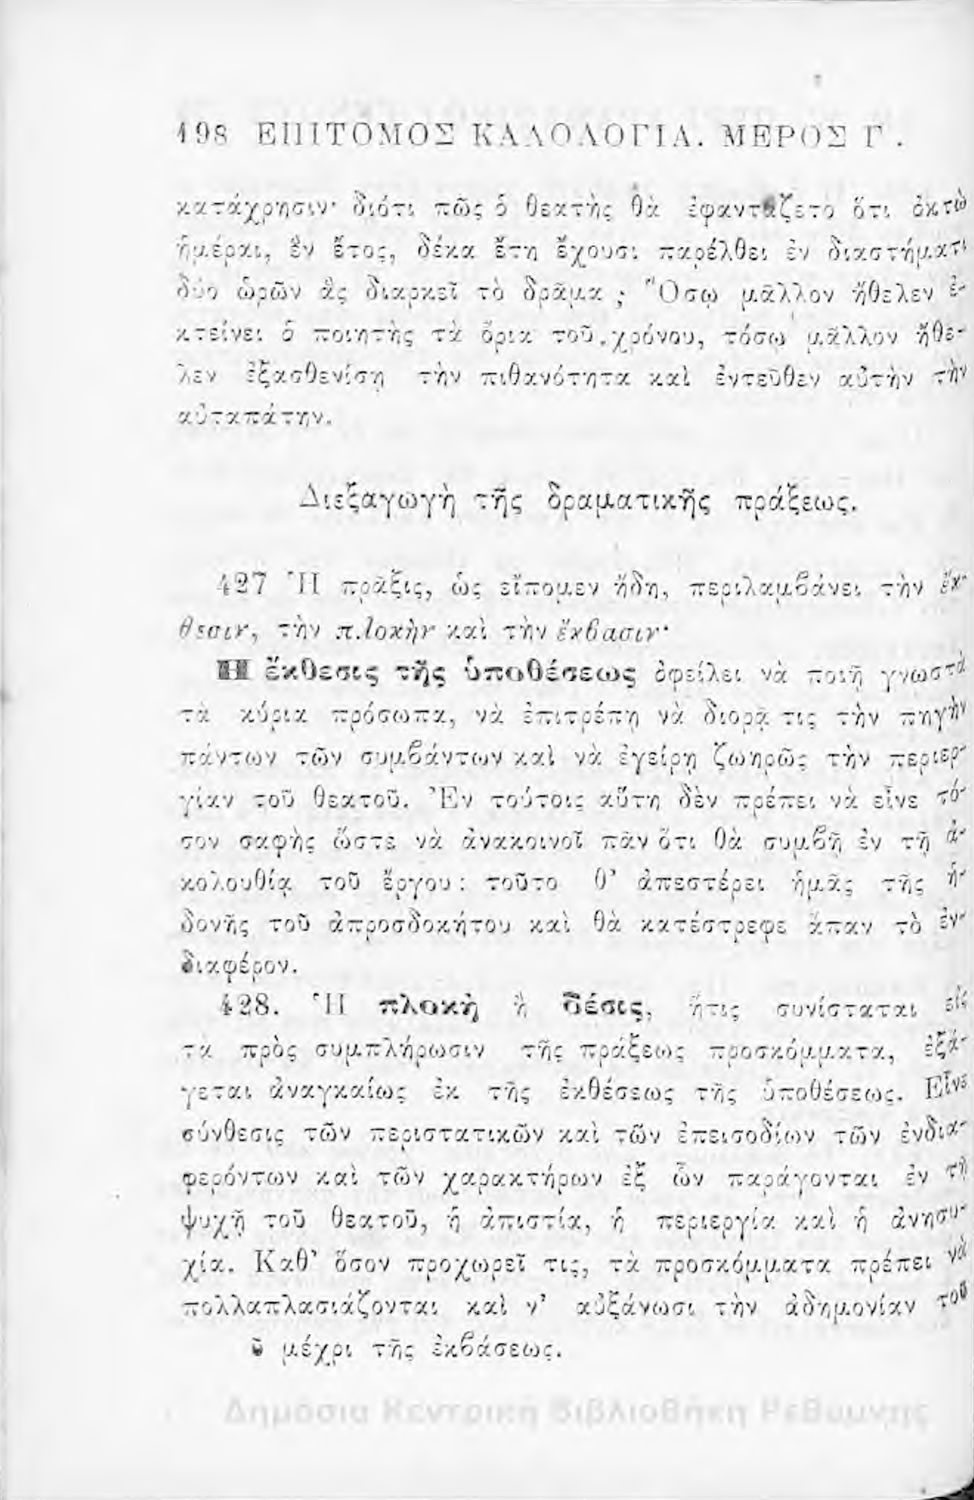 198 ΕΠΙΤΟΜΟΣ ΚΑΛΟΛΟΓΙΑ. ΜΕΡΟΣ Γ.
κατάχρησιν· διότι πῶς ὁ θεατὴς θὰ ἐφαντάζετο ὅτι ὀκτὼ
ἡμέραι, ἓν ἔτος, δέκα ἔτη ἔχουσι παρέλθει ἐν διαστήματι
δύο ὡρῶν ἃς διαρκεῖ τὸ δρᾶμα ; Ὅσῳ μᾶλλον ἤθελεν ἐ-
κτείνει ὁ ποιητὴς τὰ ὅρια τοῦ χρόνου, τόσῳ μᾶλλον ἤθε-
λεν ἐξασθενίσῃ τὴν πιθανότητα καὶ ἐντεῦθεν αὐτὴν τὴν
αὐταπάτην.
Διεξαγωγὴ τῆς δραματικῆς πράξεως.
427 Ἡ πρᾶξις, ὡς εἴπομεν ἤδη, περιλαμβάνει τὴν ἔκ-
θεσιν, τὴν πλοκὴν καὶ τὴν ἔκβασιν·
Η ἔκθεσις τῆς ὑποθέσεως ὀφείλει νὰ ποιῇ γνωστὰ
τὰ κύρια πρόσωπα, νὰ ἐπιτρέπῃ νὰ διορᾷ τις τὴν πηγὴν
πάντων τῶν συμβάντων καὶ νὰ ἐγείρῃ ζωηρῶς τὴν περιερ-
γίαν τοῦ θεατοῦ. Ἐν τούτοις αὕτη δὲν πρέπει νὰ εἶνε τό-
σον σαφὴς ὥστε νὰ ἀνακοινοῖ πᾶν ὅτι θὰ συμβῇ ἐν τῇ ἀ-
κολουθίᾳ τοῦ ἔργου : τοῦτο θ' ἀπεστέρει ἡμᾶς τῆς ἡ-
δονῆς τοῦ ἀπροσδοκήτου καὶ θὰ κατέστρεφε ἅπαν τὸ ἐν-
διαφέρον.
428. Ἡ πλοκὴ ἢ δέσις, ἥτις συνίσταται εἰς
τὰ πρὸς συμπλήρωσιν τῆς πράξεως προσκόμματα, ἐξά-
γεται ἀναγκαίως ἐκ τῆς ἐκθέσεως τῆς ὑποθέσεως. Εἶνε
σύνθεσις τῶν περιστατικῶν καὶ τῶν ἐπεισοδίων τῶν ἐνδια-
φερόντων καὶ τῶν χαρακτήρων ἐξ ὧν παράγονται ἐν τῇ
ψυχῇ τοῦ θεατοῦ, ἡ ἀπιστία, ἡ περιεργία καὶ ἡ ἀνησυ-
χία. Καθ' ὅσον προχωρεῖ τις, τὰ προσκόμματα πρέπει νὰ
πολλαπλασιάζονται καὶ ν' αὐξάνωσι τὴν ἀδημονίαν τοῦ
μέχρι τῆς ἐκβάσεως.
Δημόσια Κεντρική Βιβλιοθήκη Ρεθύμνης